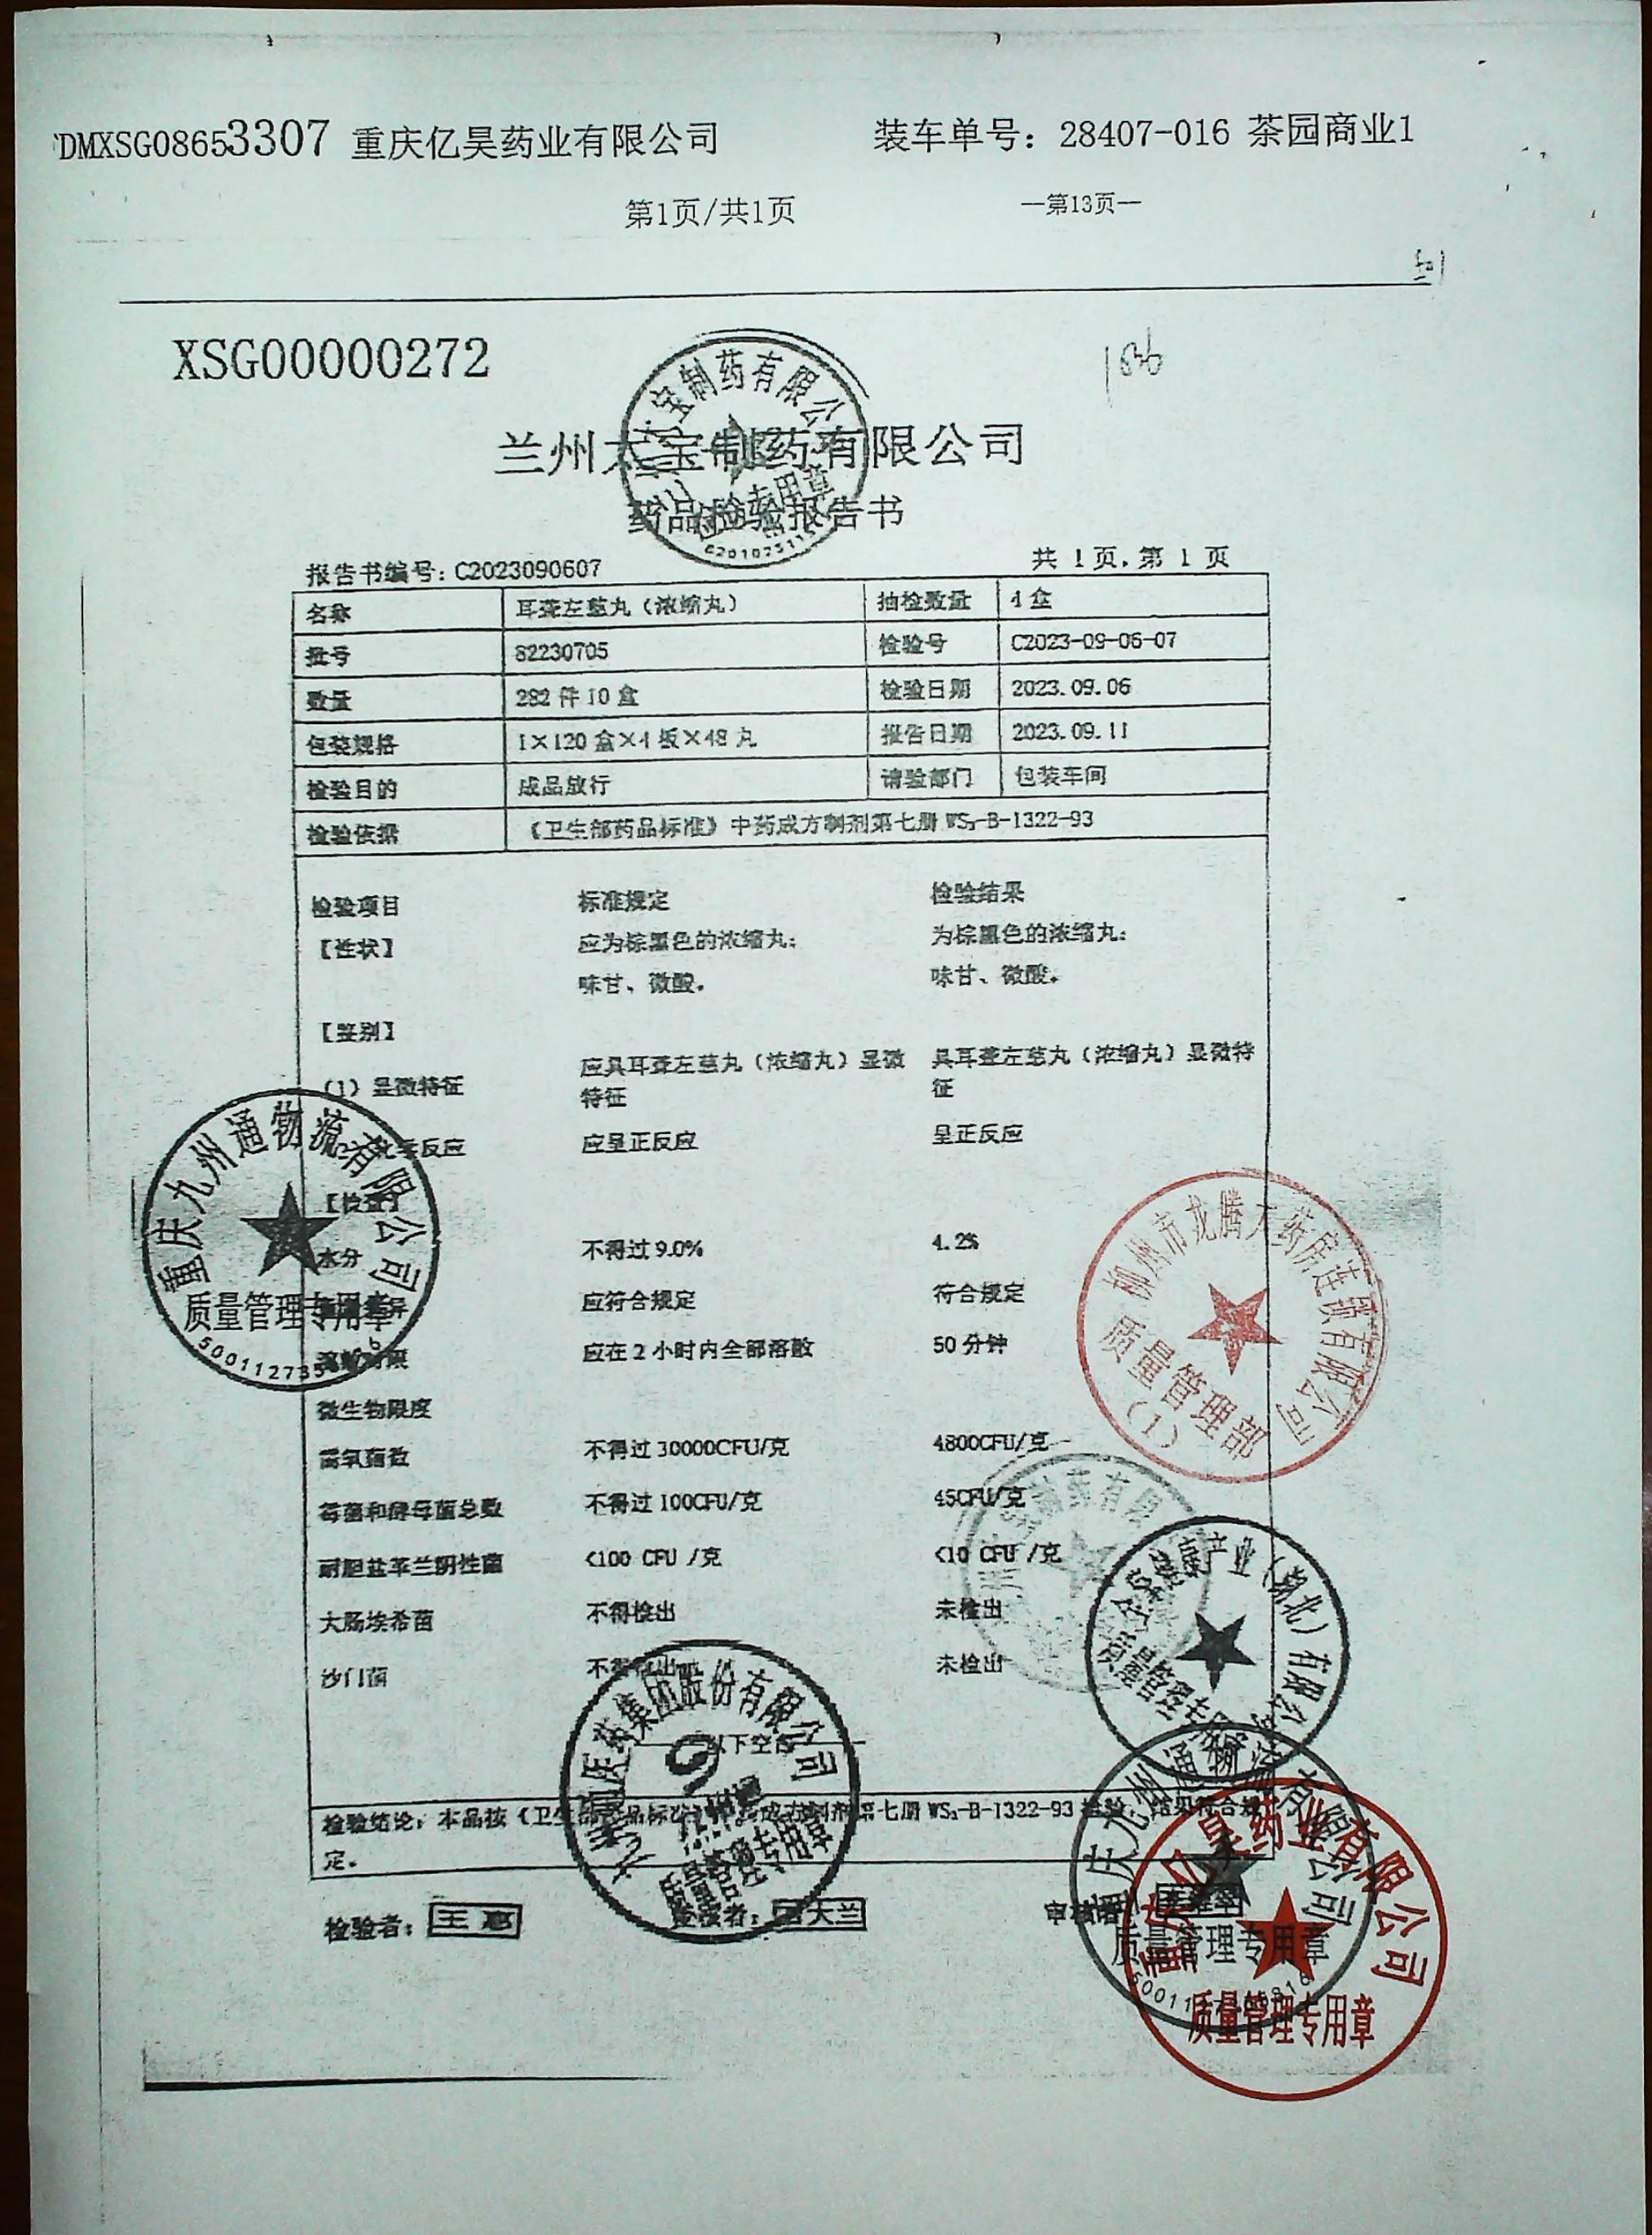 DMXSG08653307 重庆亿昊药业有限公司 装车单号：28407-016 茶园商业1
第1页/共1页 —第13页—
XSG00000272
兰州太宝制药有限公司
药品检验报告书
报告书编号：C2023090607 共 1 页，第 1 页
名称 耳聋左慈丸（浓缩丸） 抽检数量 4 盒
批号 82230705 检验号 C2023-09-06-07
数量 282 件 10 盒 检验日期 2023.09.06
包装规格 1×120 盒×4 板×48 丸 报告日期 2023.09.11
检验目的 成品放行 请验部门 包装车间
检验依据 《卫生部药品标准》中药成方制剂第七册 WS₃-B-1322-93
检验项目 标准规定 检验结果
【性状】 应为棕黑色的浓缩丸； 为棕黑色的浓缩丸；
味甘、微酸。 味甘、微酸。
【鉴别】
（1）显微特征 应具耳聋左慈丸（浓缩丸）显微特征 具耳聋左慈丸（浓缩丸）显微特征
化学反应 应呈正反应 呈正反应
【检查】
水分 不得过 9.0% 4.2%
应符合规定 符合规定
溶散时限 应在 2 小时内全部溶散 50 分钟
微生物限度
需氧菌数 不得过 30000CFU/克 4800CFU/克
霉菌和酵母菌总数 不得过 100CFU/克 45CFU/克
耐胆盐革兰阴性菌 <100 CFU /克 <10 CFU /克
大肠埃希菌 不得检出 未检出
沙门菌 不得检出 未检出
以下空白
检验结论：本品按《卫生部药品标准》中药成方制剂第七册 WS₃-B-1322-93 检验，结果符合规
定。
检验者：王惠 复核者： 大兰 审核者：
宝制药有限公
检验专用章
重庆九州通物流有限公司
质量管理专用章
柳州市龙腾大药房连锁有限公司
质量管理部
（1）
制药有限
产业（湖北）有限公
九州通医药集团股份有限公司
质量管理专用章
庆九州通物流有限公司
质量管理专用章
重庆亿昊药业有限公司
质量管理专用章